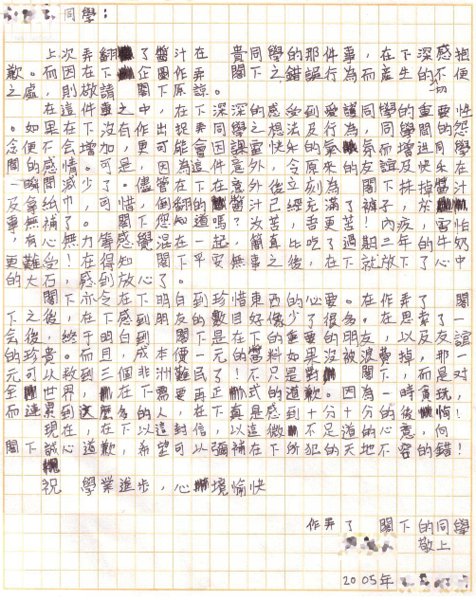 同學：
上次弄翻了醬汁在　貴同學的那件事，在下深感抱
歉。而因在下企圖作弄　閣下之錯誤行為而產生的不便
之處，則敬請　閣下原諒。
在這件事之中，在下深深的感受到愛護同學的重要性
。如果在下沒有作出捉弄同學之想法及行為，同學間的怨
念便不會增加，更可能會因課室快乐的氣氛而增進同
閣的感情。可是，因為這件意外，令原來的友誼及快乐在
一瞬間減少了。儘管在下在意外後立刻為　閣下抹掉醬汁
及拿給巾，可惜，倒翻的醬汁已經充滿了褲子，於
事無補了。　閣下您知道嗎？汝苦，吾更苦！內疚，害怕
，有心無力等感覺混在一起，簡直比吃了過期三年的牛奶
更難受！在得知　閣下平安無事之後，在下就放下了心中
的大石，感到放心了。
閣下亦令在下明白到珍惜東西的心要。在作弄了　閣
下之後，在下感到朋友的數目好像少了很多。在思索了一
會後，終于明白到　閣下是在下的重要的朋友，以及友誼
的珍貴。而且，成本便一元的醬料如果沒被浪費掉，那一
元可以救到三個非洲難民了！不只是對　閣下，而是對
至世界，在下需要再正式的道歉。因為一時貪玩，
而連累到這麼多的人，在下真是感到十分十分的後悔！
現在，在下以這封信，以這微不足道的心意，向
閣下誠心道歉，希望可以彌補在下所犯的天地不容的錯！
祝　學業進步，心境愉快
作弄了　閣下的同學
敬上
2005年